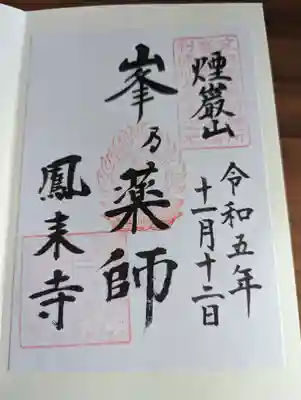 煙巖山
令和五年
十一月十二日
峯乃薬師
鳳来寺